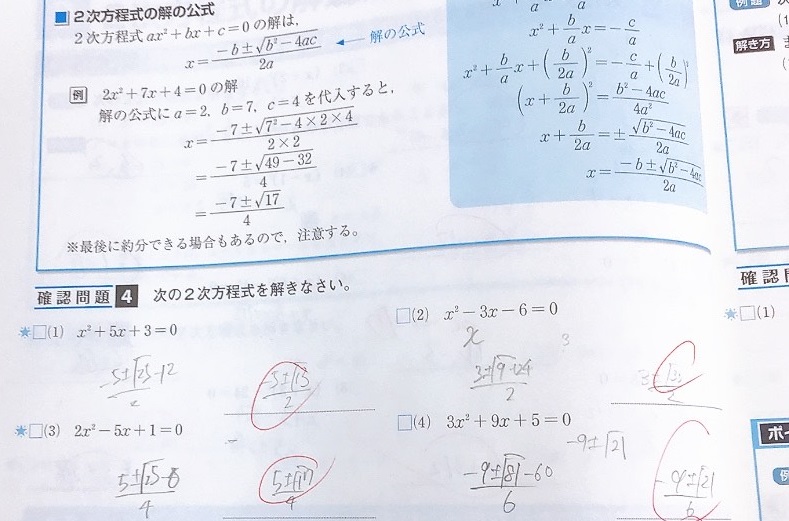 ■ 2次方程式の解の公式
2次方程式 ax²+bx+c=0 の解は,
x=(-b±√(b²-4ac))/2a ← 解の公式
例 2x²+7x+4=0 の解
解の公式に a=2, b=7, c=4 を代入すると,
x=(-7±√(7²-4×2×4))/(2×2)
=(-7±√(49-32))/4
=(-7±√17)/4
※最後に約分できる場合もあるので, 注意する。
x²+(b/a)x=-c/a
x²+(b/a)x+(b/2a)²=-c/a+(b/2a)²
(x+b/2a)²=(b²-4ac)/4a²
x+b/2a=±√(b²-4ac)/2a
x=(-b±√(b²-4ac))/2a
例題
(1
解き方
確認問題 4 次の2次方程式を解きなさい。
★□(1) x²+5x+3=0
-5±√25-12/2
-5±√13/2
□(2) x²-3x-6=0
x
3
3±√9+24/2
★□(3) 2x²-5x+1=0
5±√25-8/4
5±√17/4
□(4) 3x²+9x+5=0
-9±√21
-9±√81-60/6
-9±√21/6
確認
★□(1)
ポイ
例